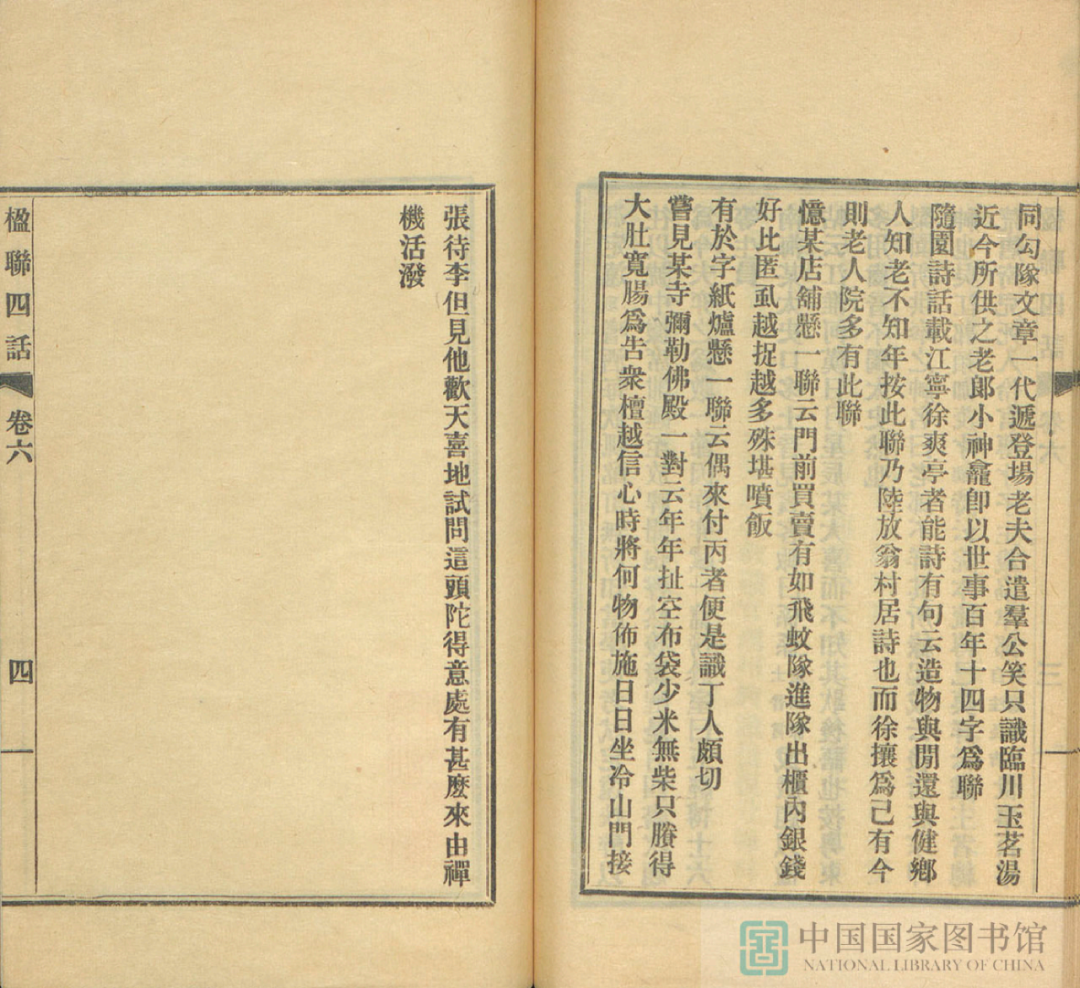 同勾隊文章一代遞登場老夫合遣羣公笑只識臨川玉茗湯
近今所供之老郎小神龕卽以世事百年十四字爲聯
隨園詩話載江寧徐爽亭者能詩有句云造物與閒還與健鄕
人知老不知年按此聯乃陸放翁村居詩也而徐攘爲己有今
則老人院多有此聯
憶某店舖懸一聯云門前買賣有如飛蚊隊進隊出櫃內銀錢
好比匿虱越捉越多殊堪噴飯
有於字紙爐懸一聯云偶來付丙者便是識丁人頗切
嘗見某寺彌勒佛殿一對云年年扯空布袋少米無柴只賸得
大肚寬腸爲告衆檀越信心時將何物佈施日日坐冷山門接
張待李但見他歡天喜地試問這頭陀得意處有甚麼來由禪
機活潑
楹聯四話
卷六
四
中国国家图书馆
NATIONAL LIBRARY OF CHINA